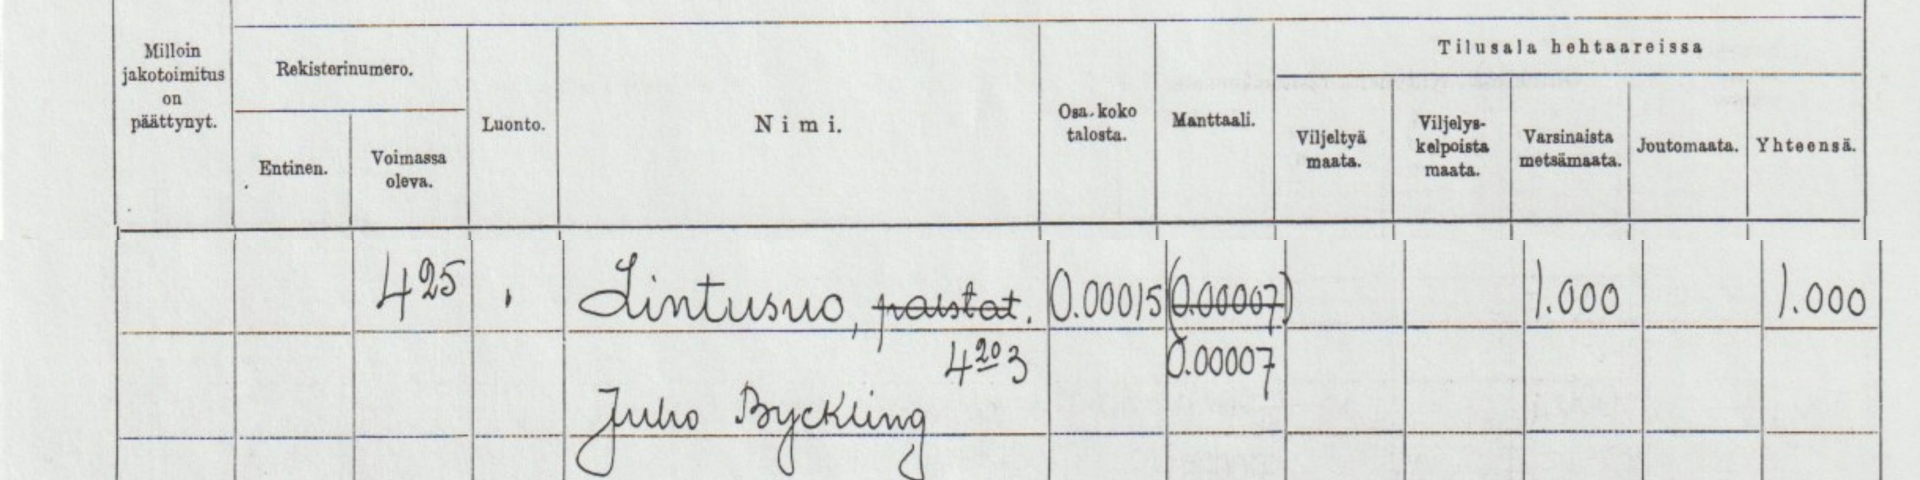 Milloin jakotoimitus on päättynyt.
Rekisterinumero.
Entinen.
Voimassa oleva.
Luonto.
Nimi.
Osa koko talosta.
Manttaali.
Tilusala hehtaareissa
Viljeltyä maata.
Viljelys-kelpoista maata.
Varsinaista metsämaata.
Joutomaata.
Yhteensä.
425 . Lintusuo, palstat. 0.00015 (0.00007) 1.000 1.000
4203 0.00007
Juho Byckling